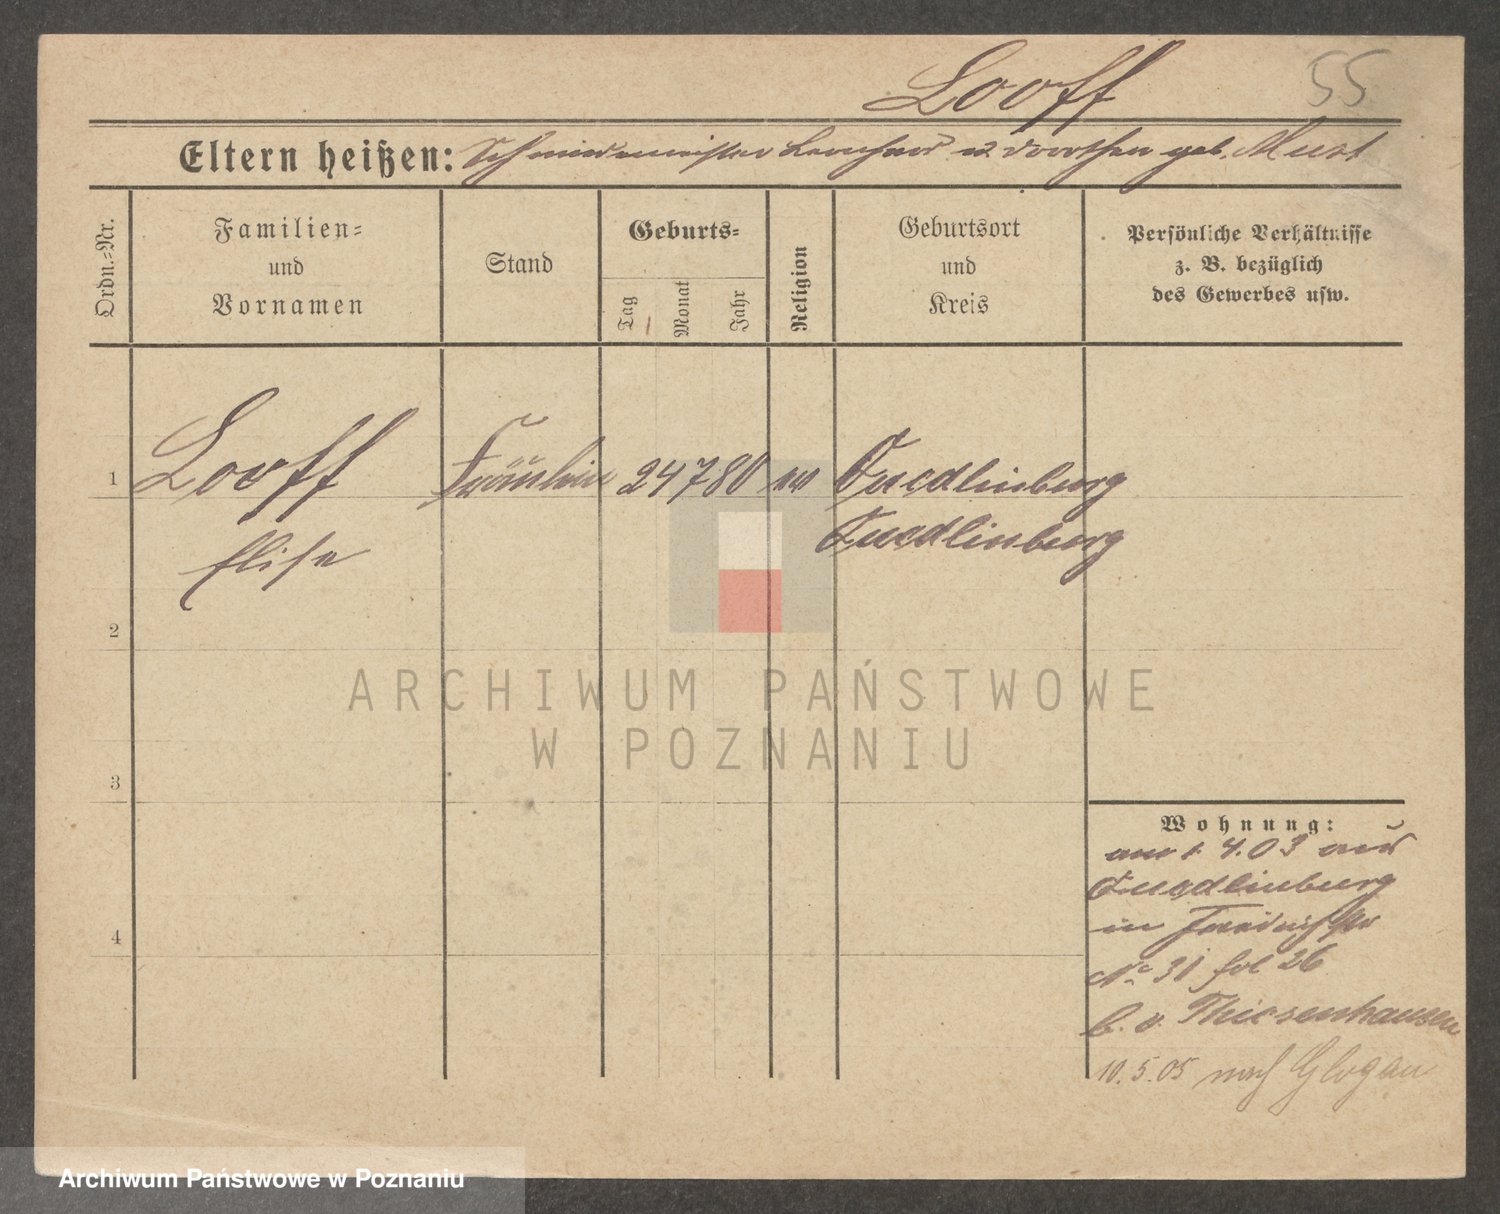 Looff 55
Eltern heißen: Schmiedemeister u. Dorothea geb. Must
Ordn.=Nr.
Familien=
und
Vornamen
Stand
Geburts=
Tag
Monat
Jahr
Religion
Geburtsort
und
Kreis
Persönliche Verhältnisse
z. B. bezüglich
des Gewerbes usw.
1 Looff Fräulein 24 7 80 ev Quedlinburg
Elise Quedlinburg
2
3
4
Wohnung:
am 1.4.03 aus
Quedlinburg
in
No 31 fol 26
b. v. Thiesenhausen
10.5.05 nach Glogau
ARCHIWUM PAŃSTWOWE
W POZNANIU
Archiwum Państwowe w Poznaniu